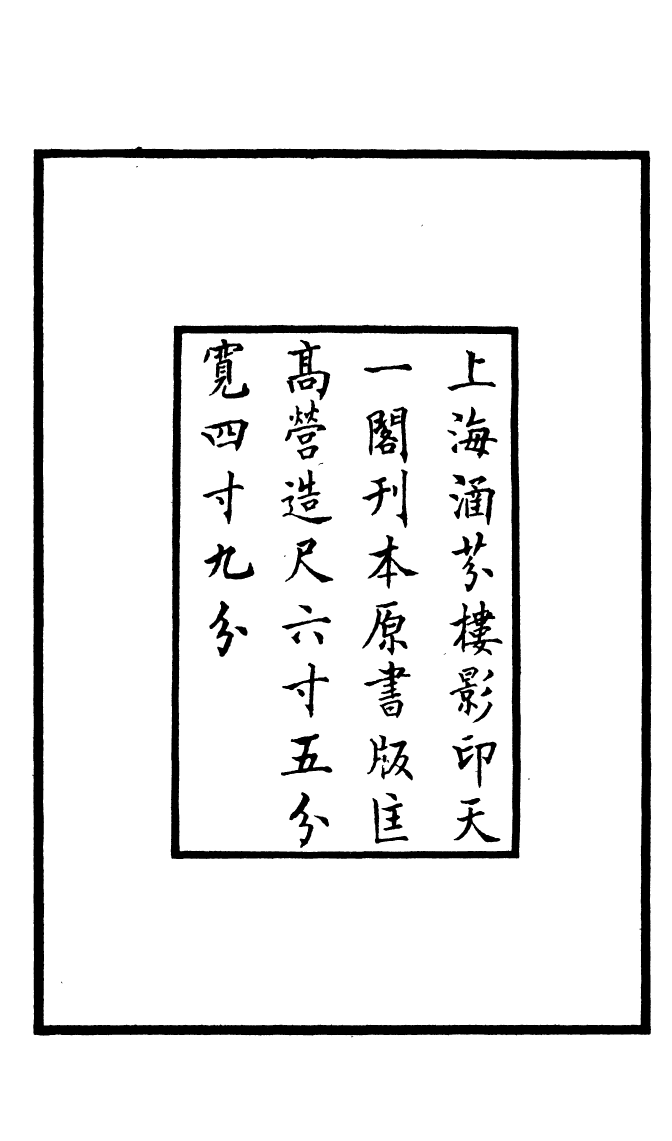 上海涵芬樓影印天
一閣刊本原書版匡
髙營造尺六寸五分
寬四寸九分